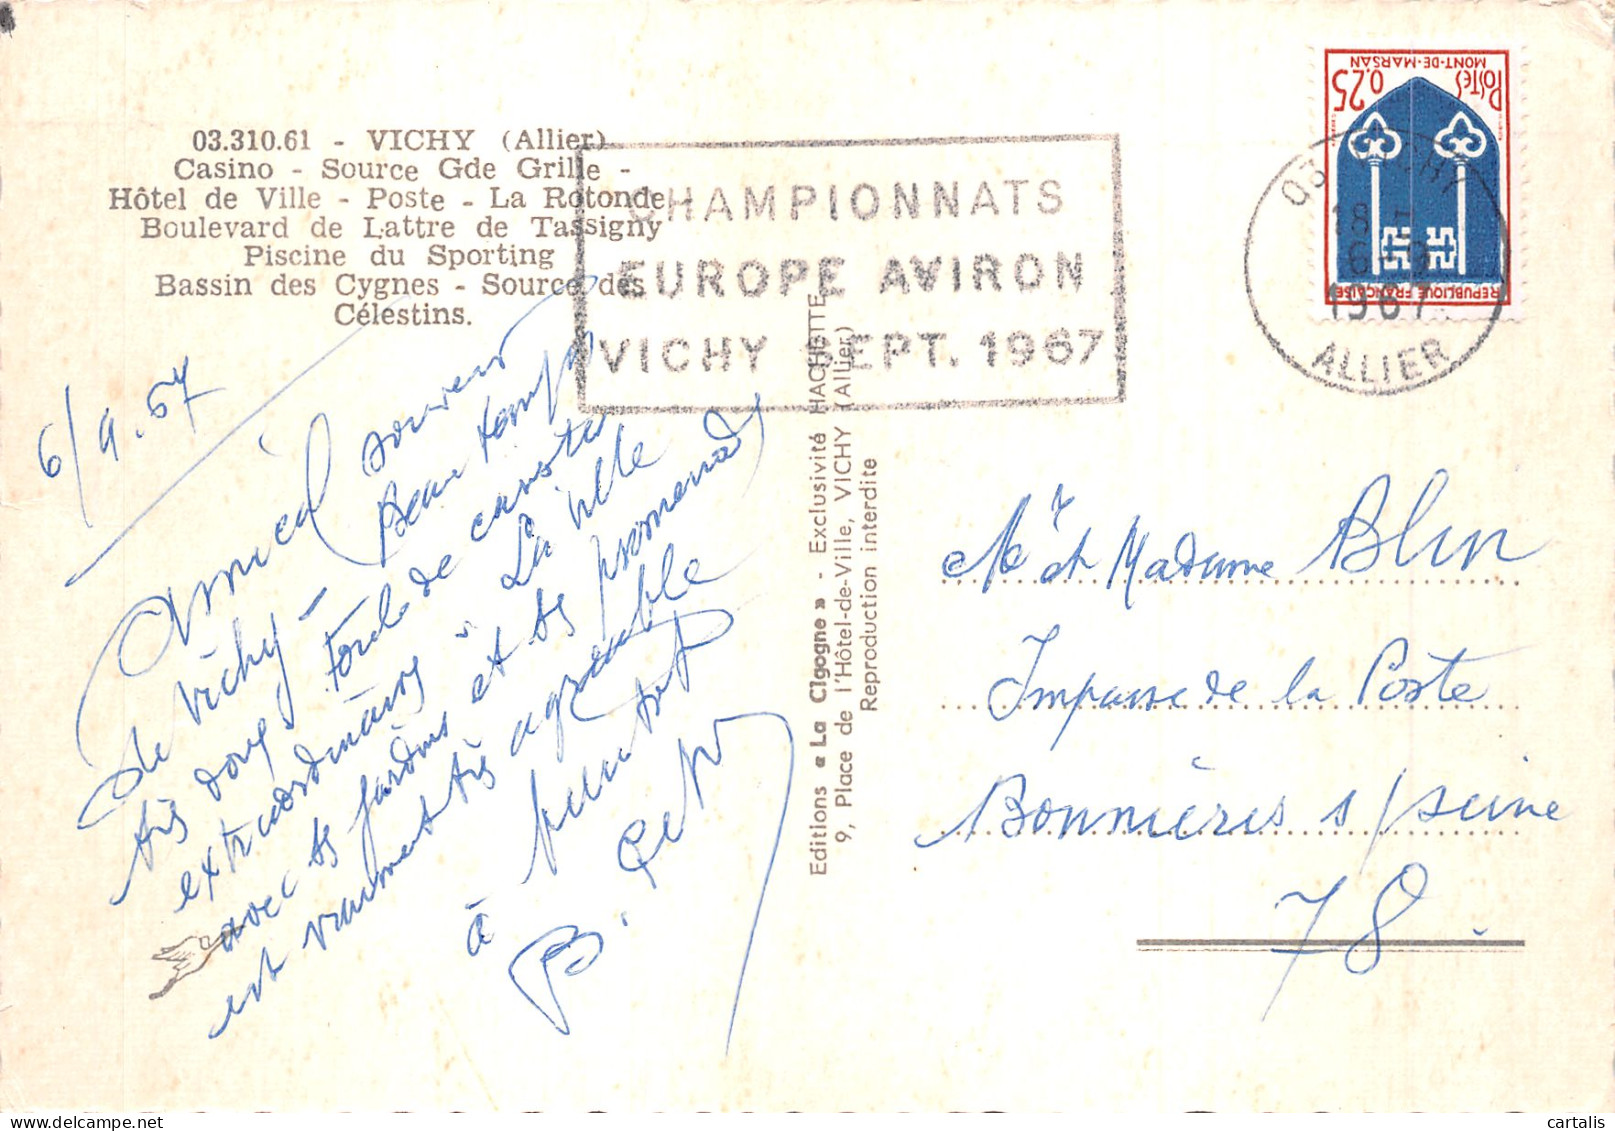 03.310.61 - VICHY (Allier)
Casino - Source Gde Grille -
Hôtel de Ville - Poste - La Rotonde
Boulevard de Lattre de Tassigny
Piscine du Sporting
Bassin des Cygnes - Source des
Célestins.
CHAMPIONNATS
EUROPE AVIRON
VICHY SEPT. 1967
POSTES 0.25
MONT-DE-MARSAN
REPUBLIQUE FRANÇAISE
03 VICHY
18 H
6-9
1967
ALLIER
6/9.67
Amical souvenir
de Vichy - Beau temps
très doux. Foule de
extraordinaire. La ville
avec ses jardins et ses promenades
est vraiment très agréable
à
B.
Editions « La Cigogne » - Exclusivité HACHETTE
9, Place de l'Hôtel-de-Ville, VICHY (Allier)
Reproduction interdite
Mr et Madame Blin
Impasse de la Poste
Bonnières s/Seine
78
cartalis